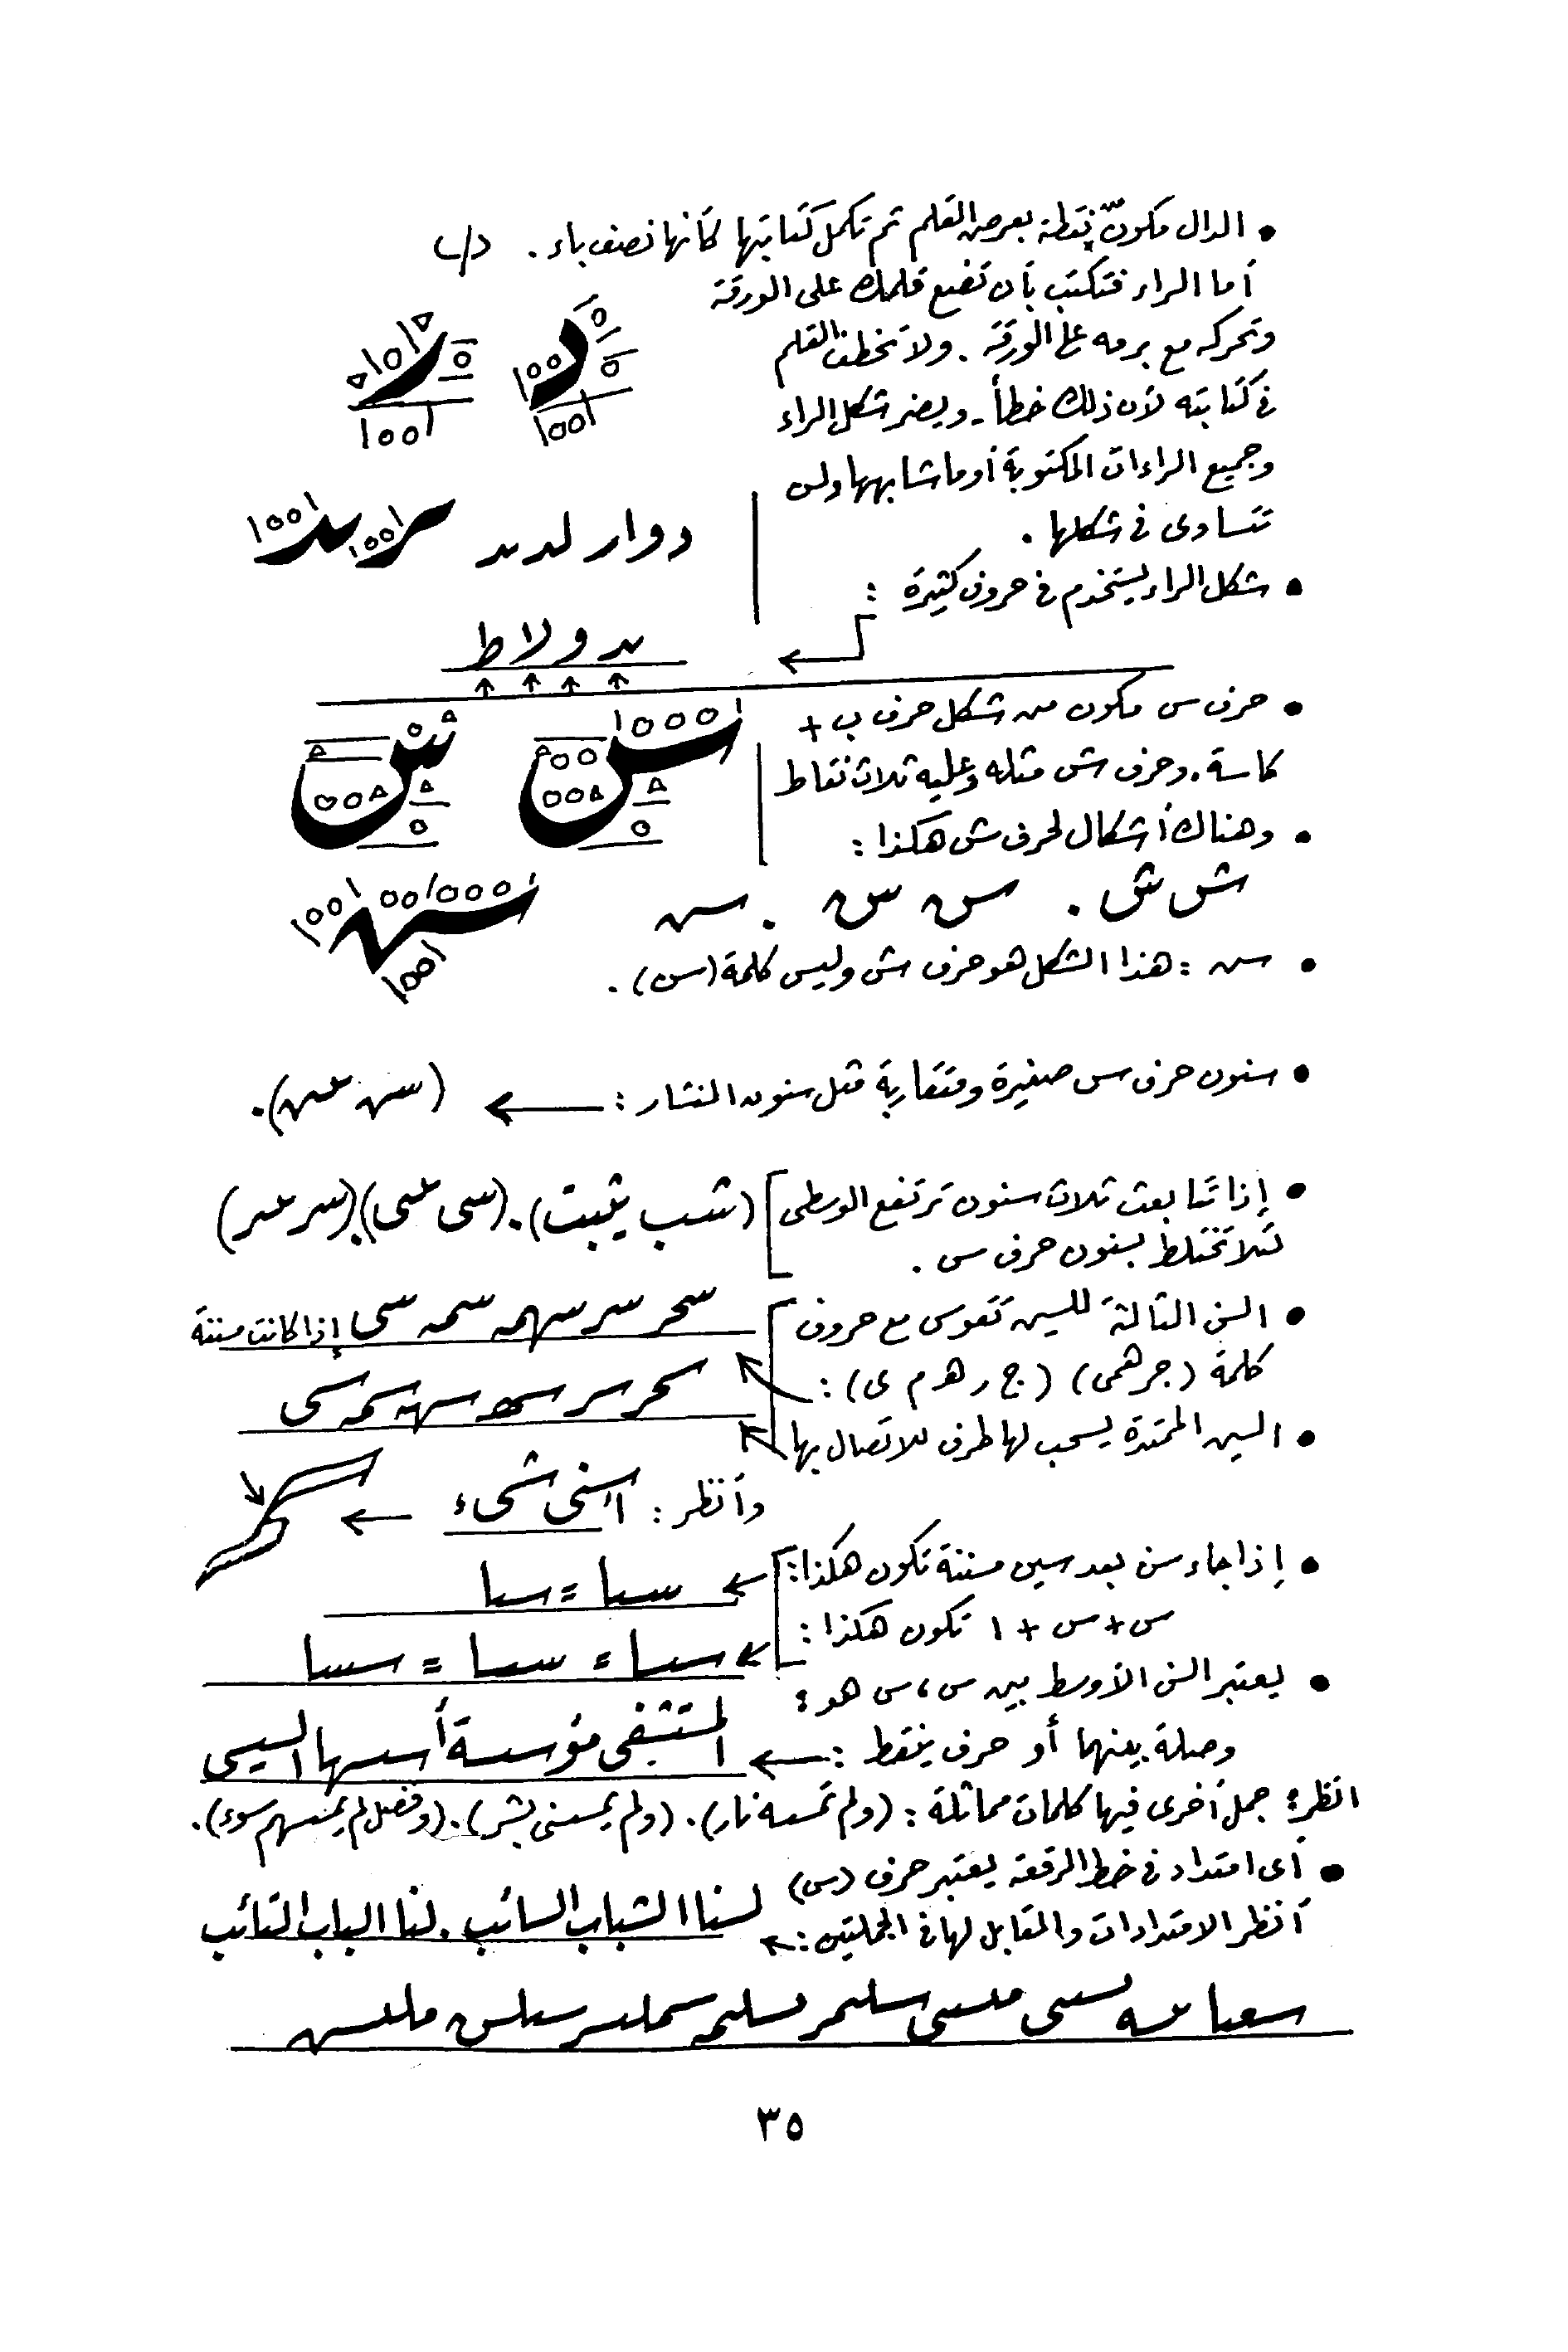 • الدال مكونٌ نقطة بعرض القلم ثم تكمل كتابتها كأنها نصف باء .
أما الراء فتكتب بأن تضع قلمك على الورقة
وتحركه مع برمه على الورقة . ولا تخطف القلم
فى كتابته لأن ذلك خطأ - ويضر شكل الراء
وجميع الراءات المكتوبة أو ما شابهها ولن
تتساوى فى شكلها .
دوار لد
• شكل الراء يستخدم فى حروف كثيرة :
بد و لا ط
• حرف س مكون من شكل حرف ب +
كاسة . وحرف ش مثله وعليه ثلاث نقاط
• وهناك أشكال لحرف ش هكذا :
ش ش . س س . س
• س : هذا الشكل هو حرف ش وليس كلمة (سن) .
• سنون حرف س صغيرة ومتقاربة مثل سنون المنشار : ←
• إذا تتابعت ثلاث سنون ترتفع الوسطى (شب يثبت) . (سى عسى)
لئلا تختلط بسنون حرف س .
• السن الثالثة للسين تتقوس مع حروف
سحر سر سهم سمه سى إذا كانت مسننة
كلمة (جرهمى) (ج ر ه م ى) :
• السين الممتدة يسحب لها طرف للاتصال بها
وأنظر : شىء ←
• إذا جاء سن بعد سين مسننة تكون هكذا : ← سبا = سبا
س + س + ا تكون هكذا :
• يعتبر السن الأوسط بين س ، س هو :
وصلة بينهما أو حرف ينقط : ← المستشفى مؤسسة أسسها السيسى
انظر : جمل أخرى فيها كلمات مماثلة : (ولم تمسسه نار) . (ولم يمسسنى بشر) . (وفضل لم يمسسهم سوء) .
• أى امتداد فى خط الرقعة يعتبر حرف (س)
أنظر الامتدادات والمقابل لها فى الجملتين : ← لسنا الشباب السائب . لنا الباب التائب
٣٥